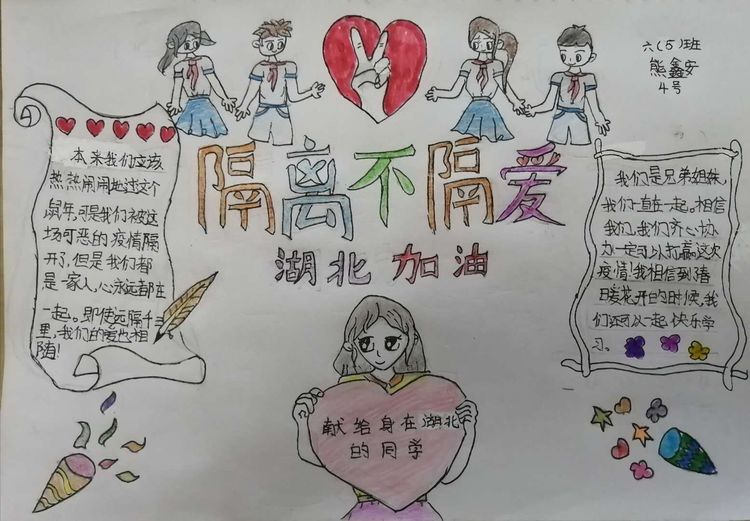 六(5)班
熊鑫安
4号
隔离不隔爱
湖北加油
本来我们应该
热热闹闹地过这个
鼠年,可是我们被这
场可恶的疫情隔
开了,但是我们都
是一家人,心永远都在
一起。即使远隔千
里,我们的爱也相
随!
我们是兄弟姐妹,
我们一直在一起。相信
我们,我们齐心协
力一定可以打赢这次
疫情!我相信到春
暖花开的时候,我
们还可以一起快乐学
习。
献给身在湖北
的同学